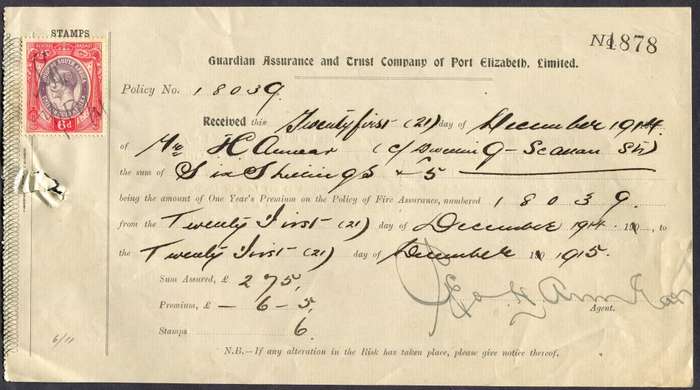 STAMPS
No. 1878
Guardian Assurance and Trust Company of Port Elizabeth, Limited.
6d
Policy No. 18039
Received this Twenty first (21) day of December 1914
of Mr H
the sum of Six Shillings & 5
being the amount of One Year's Premium on the Policy of Fire Assurance, numbered 18039
from the Twenty First (21) day of December 1914 190 , to
the Twenty First (21) day of December 1915.
Sum Assured, £ 275,
Premium, £ – 6 – 5,
Stamps 6.
Agent.
6/11
N.B.—If any alteration in the Risk has taken place, please give notice thereof.